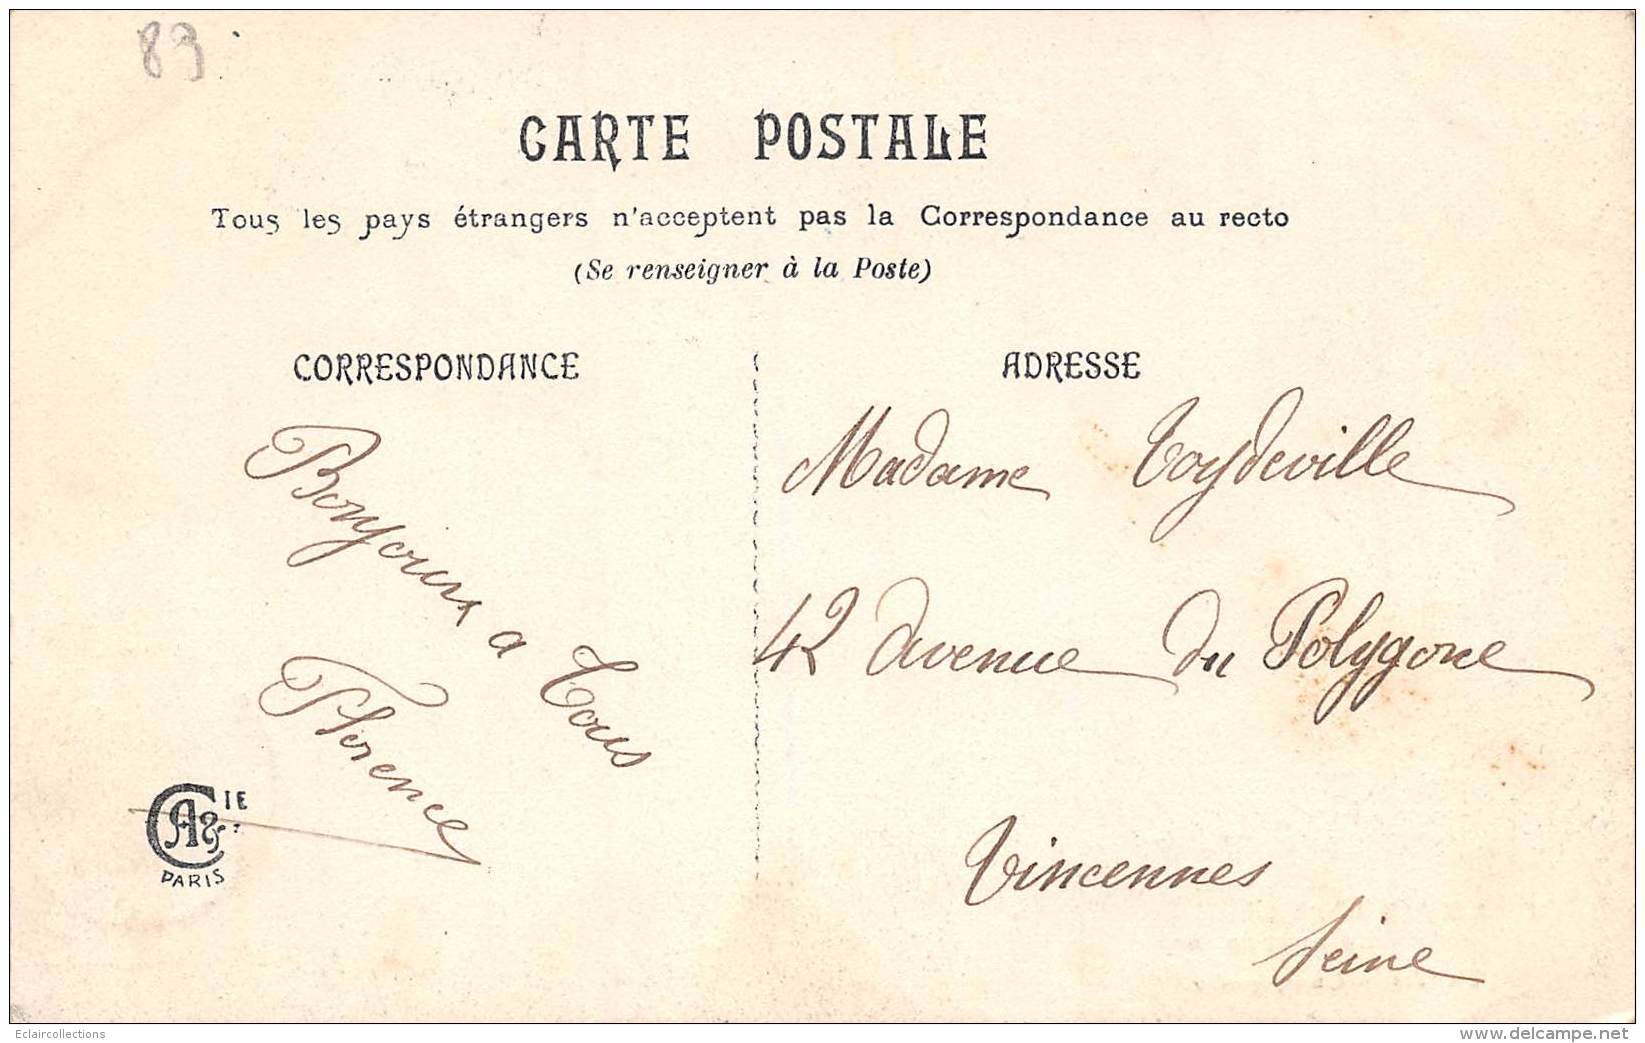 89
CARTE POSTALE
Tous les pays étrangers n'acceptent pas la Correspondance au recto
(Se renseigner à la Poste)
CORRESPONDANCE
Bonjour a Tous
Florence
CIE
PARIS
ADRESSE
Madame Toydeville
42 avenue du Polygone
Vincennes
Seine
Eclaircollections
www.delcampe.net